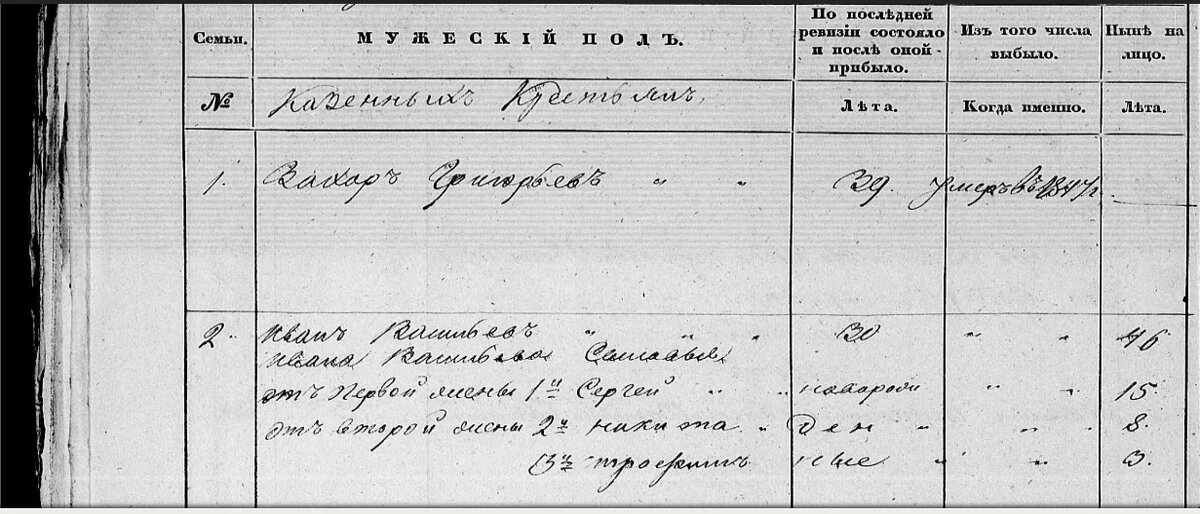 Семьи. МУЖЕСКІЙ ПОЛЪ. По послѣдней ревизіи состояло и послѣ оной прибыло. Изъ того числа выбыло. Нынѣ на лицо.
№ Казенныхъ Крестьянъ, Лѣта. Когда именно. Лѣта.
1. Захаръ Григорьевъ " " 39. умеръ въ 1847 г.
2. Иванъ Васильевъ " " " 30 " " 46
Ивана Васильева Сыновья
отъ первой жены 1й Сергей " " новорож " " 15.
отъ второй жены 2й никита " ден " " " 8.
3й трофимъ ные " " 3.